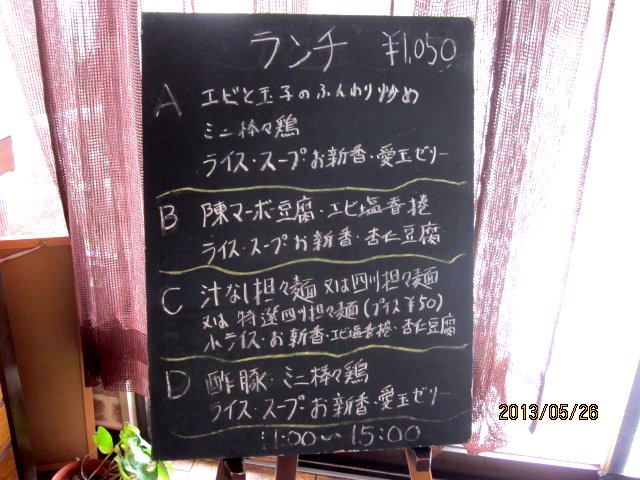 ランチ ¥1,050
A エビと玉子のふんわり炒め
ミニ棒々鶏
ライス・スープ・お新香・愛玉ゼリー
B 陳マーボ豆腐・エビ塩春捲
ライス・スープ お新香・杏仁豆腐
C 汁なし担々麺 又は四川担々麺
又は 特選四川担々麺(プラス¥50)
小ライス・お新香・エビ塩春捲・杏仁豆腐
D 酢豚・ミニ棒々鶏
ライス・スープ・お新香・愛玉ゼリー
11:00〜15:00
2013/05/26